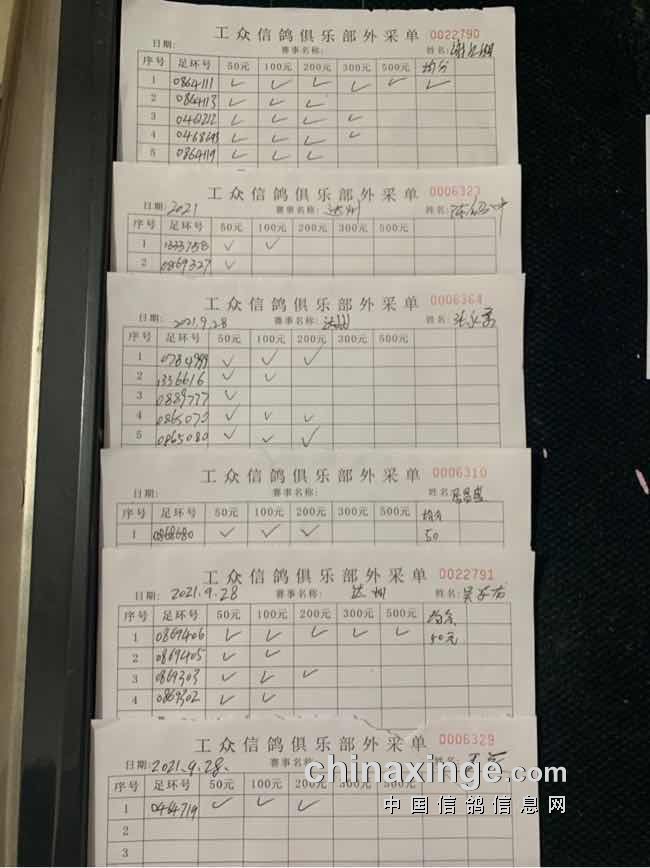 工众信鸽俱乐部外采单 0022790
日期: 赛事名称: 姓名:
序号 足环号 50元 100元 200元 300元 500元 均分
1 0864111 ✓ ✓ ✓ ✓ ✓ ✓
2 0864113 ✓ ✓ ✓
3 ✓ ✓ ✓ ✓
4 ✓ ✓ ✓ ✓
5 0864119 ✓ ✓ ✓
工众信鸽俱乐部外采单 0006323
日期: 2021 赛事名称: 达州 姓名:
序号 足环号 50元 100元 200元 300元 500元
1 1333758 ✓ ✓
2 0869327 ✓
工众信鸽俱乐部外采单 0006364
日期: 2021.9.28 赛事名称: 达州 姓名:
序号 足环号 50元 100元 200元 300元 500元
1 ✓ ✓ ✓
2 1336616 ✓ ✓
3 0889777 ✓
4 ✓ ✓ ✓
5 0865080 ✓ ✓ ✓
工众信鸽俱乐部外采单 0006310
日期: 赛事名称: 姓名:
序号 足环号 50元 100元 200元 300元 500元 均分
1 0868680 ✓ ✓ ✓ 50
工众信鸽俱乐部外采单 0022791
日期: 2021.9.28 达州 姓名:
序号 足环号 50元 100元 200元 300元 500元 均分
1 0869406 ✓ ✓ ✓ ✓ ✓ 50元
2 0869405 ✓ ✓
3 0869303 ✓ ✓ ✓
4 0869302 ✓ ✓
工众信鸽俱乐部外采单 0006329
日期: 2021.9.28.
序号 足环号 50元 100元 200元 300元 500元
1 0464719 ✓ ✓ ✓
2
3
chinaxinge.com
中国信鸽信息网